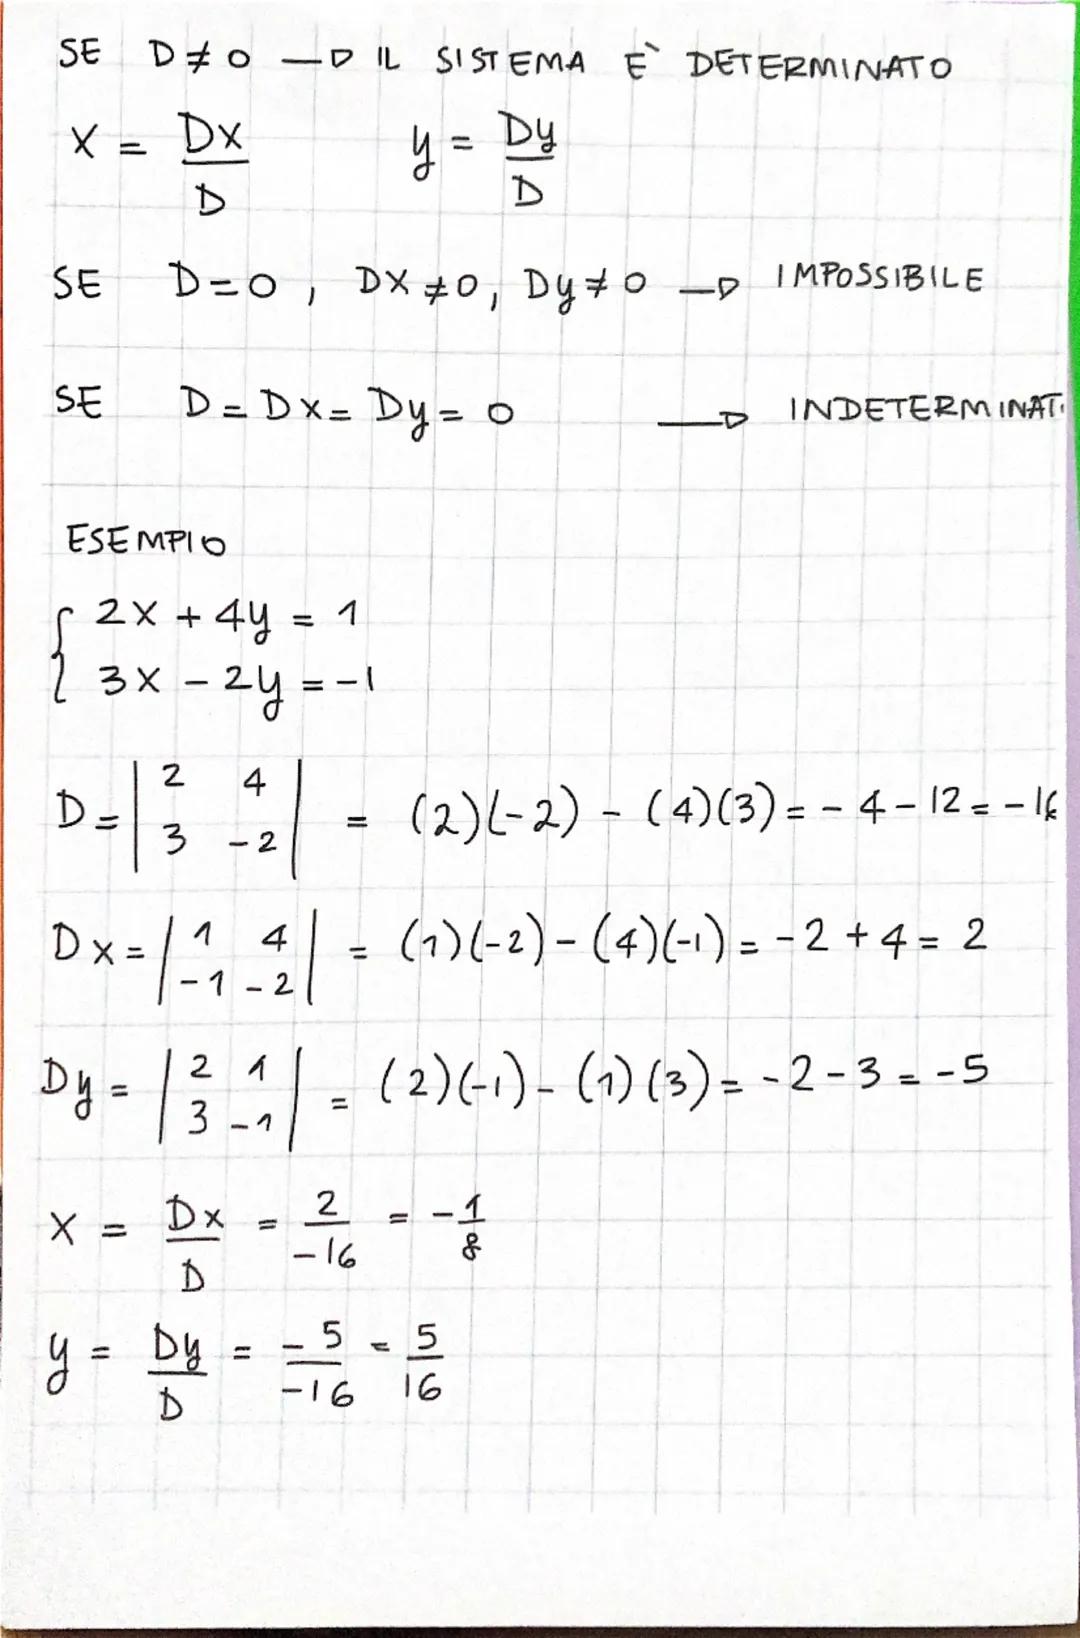 SE D≠0 → IL SISTEMA È DETERMINATO
x = Dx/D y = Dy/D
SE D=0, Dx≠0, Dy≠0 → IMPOSSIBILE
SE D=Dx=Dy=0 → INDETERMINAT
ESEMPIO
{ 2x + 4y = 1
3x - 2y = -1
D = | 2 4 | = (2)(-2) - (4)(3) = -4-12 = -16
| 3 -2 |
Dx = | 1 4 | = (1)(-2) - (4)(-1) = -2+4 = 2
| -1 -2 |
Dy = | 2 1 | = (2)(-1) - (1)(3) = -2-3 = -5
| 3 -1 |
x = Dx/D = 2/-16 = -1/8
y = Dy/D = -5/-16 = 5/16